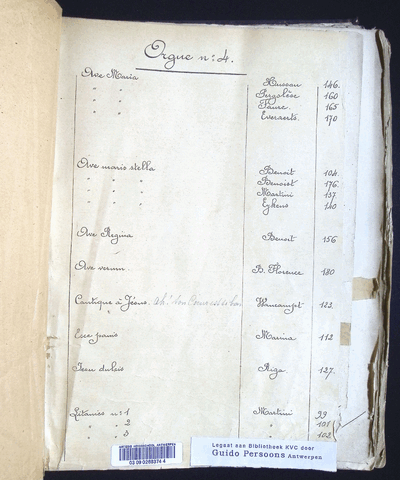 Orgue n: 4.
Ave Maria Husson 146.
" " Pergolèse 160
" " Faure. 165
" " Everaerts. 170
Ave maris stella Benoit 104.
" " " Benoist 176.
" " " Martini 137
" " " Eykens 140
Ave Regina Benoit 156
Ave verum. B. Florence 180
Cantique à Jésus. Ah! 123.
Ecce panis 112
Jesu dulcis Riga 127.
Litanies n: 1 Martini 99
" " 2 " 101
" " 3 102
03 09 0289374 4
Legaat aan Bibliotheek KVC door
Guido Persoons Antwerpen